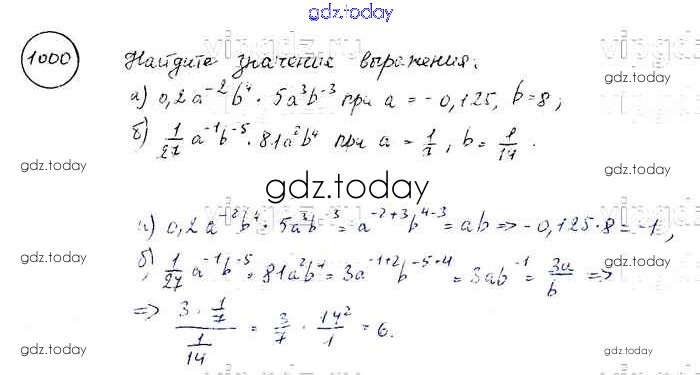 gdz.today
1000 Найдите значение выражения:
а) 0,2a⁻²b⁴ · 5a³b⁻³ при a = -0,125, b=8;
б) 1/27 a⁻¹b⁻⁵ · 81a²b⁴ при a = 1/7, b = 1/14.
gdz.today gdz.today
gdz.today
а) 0,2a⁻²b⁴ · 5a³b⁻³ = a⁻²⁺³b⁴⁻³ = ab => -0,125·8 = -1;
gdz.today gdz.today
б) 1/27 a⁻¹b⁻⁵ · 81a²b⁴ = 3a⁻¹⁺²b⁻⁵⁺⁴ = 3ab⁻¹ = 3a/b =>
=> (3 · 1/7)/(1/14) = 3/7 · 14²/1 = 6.
gdz.today gdz.today
gdz.today